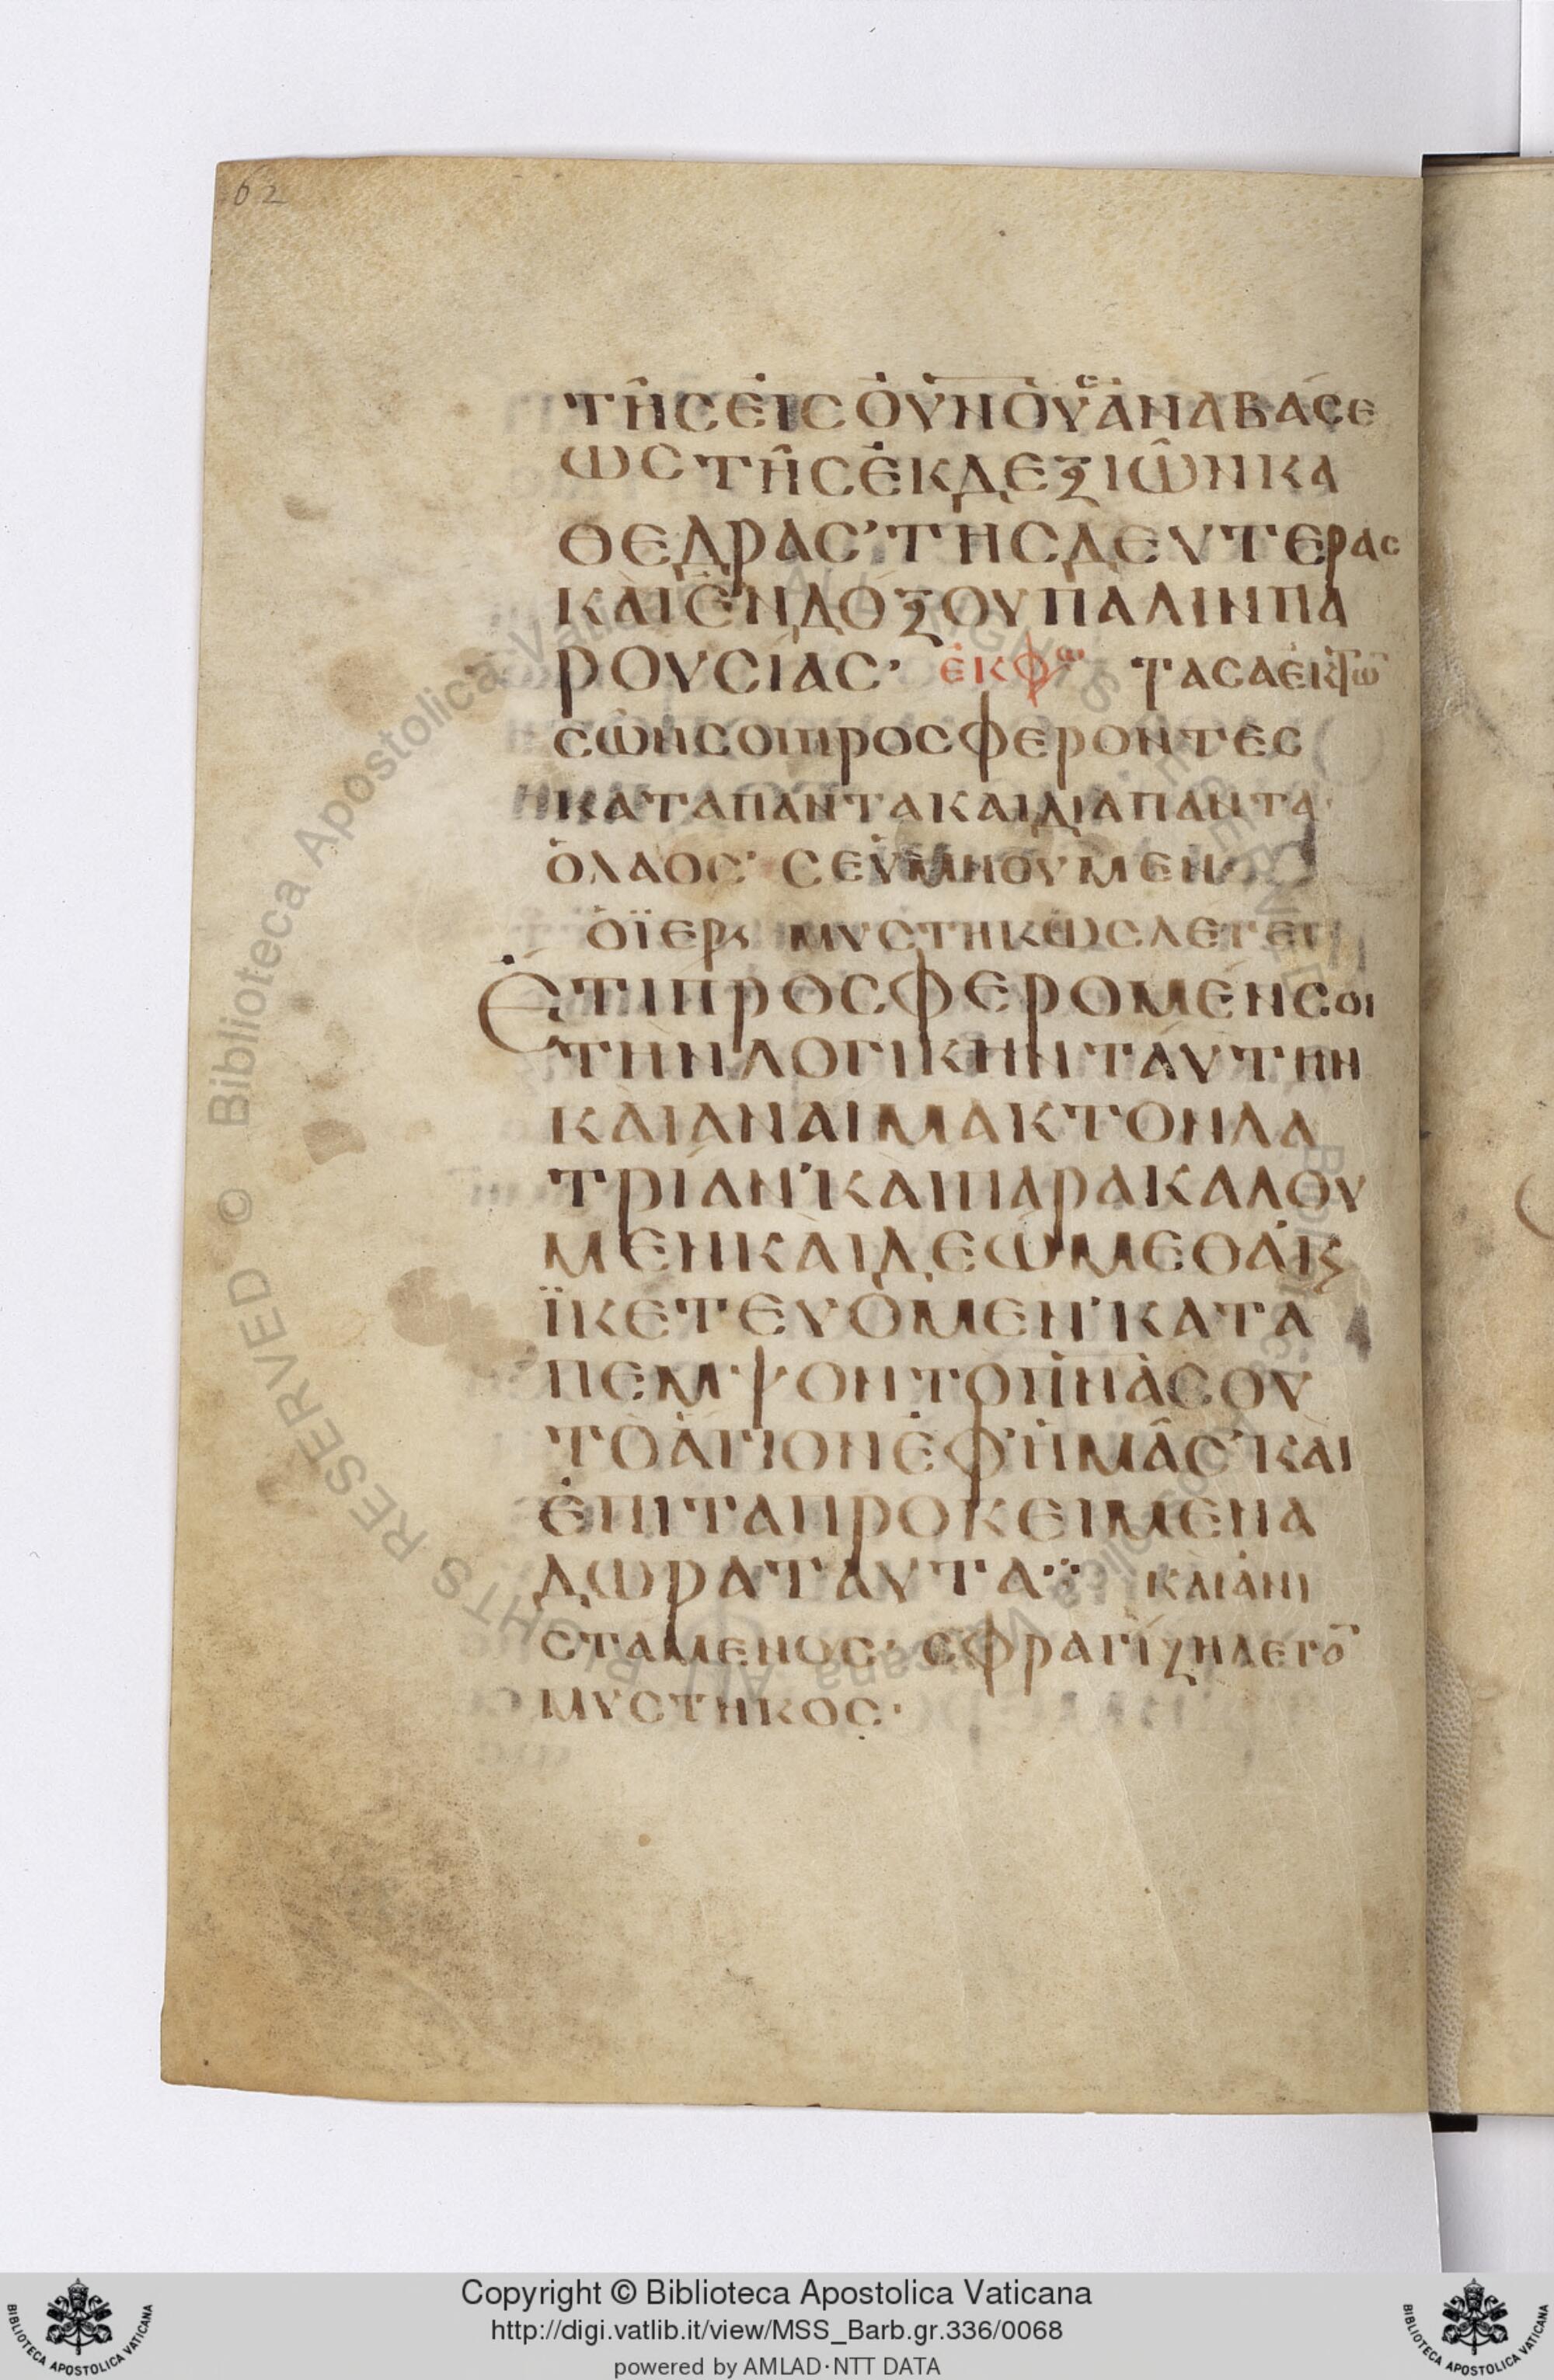 62
τῆς εἰς οὐ̅ν̅ο̅ὺς ἀναβάσε
ως τῆς ἐκ δεξιῶν κα
θέδρας' τῆς δευτέρας
καὶ ἐνδόξου πάλιν πα
ρουσίας· ἐκφω τὰ σὰ ἐκ τῶ
σῶν σοι προσφέροντες
κατὰ πάντα καὶ διὰ πάντα·
ὁ λαός· σὲ ὑμνοῦμεν
ὁ ϊερς μυστηκῶς λέγει
Ἔτι προσφέρομέν σοι
τὴν λογικὴν ταύτην
καὶ ἀναίμακτον λα
τρίαν' καὶ παρακαλοῦ
μεν καὶ δεώμεθα κς
ϊκετεύομεν' κατά
πεμ'ψον τὸ π̅ν̅α̅ σου
τὸ ἅγιον ἐφ' ἡμᾶς' καὶ
ἐπὶ τὰ προκείμενα
δῶρα ταῦτα·:· καὶ ἀνι
στάμενος· σφραγίζη λεγο
μυστηκός·
Copyright © Biblioteca Apostolica Vaticana
http://digi.vatlib.it/view/MSS_Barb.gr.336/0068
powered by AMLAD·NTT DATA
BIBLIOTECA APOSTOLICA VATICANA
BIBLIOTECA APOSTOLICA VATICANA